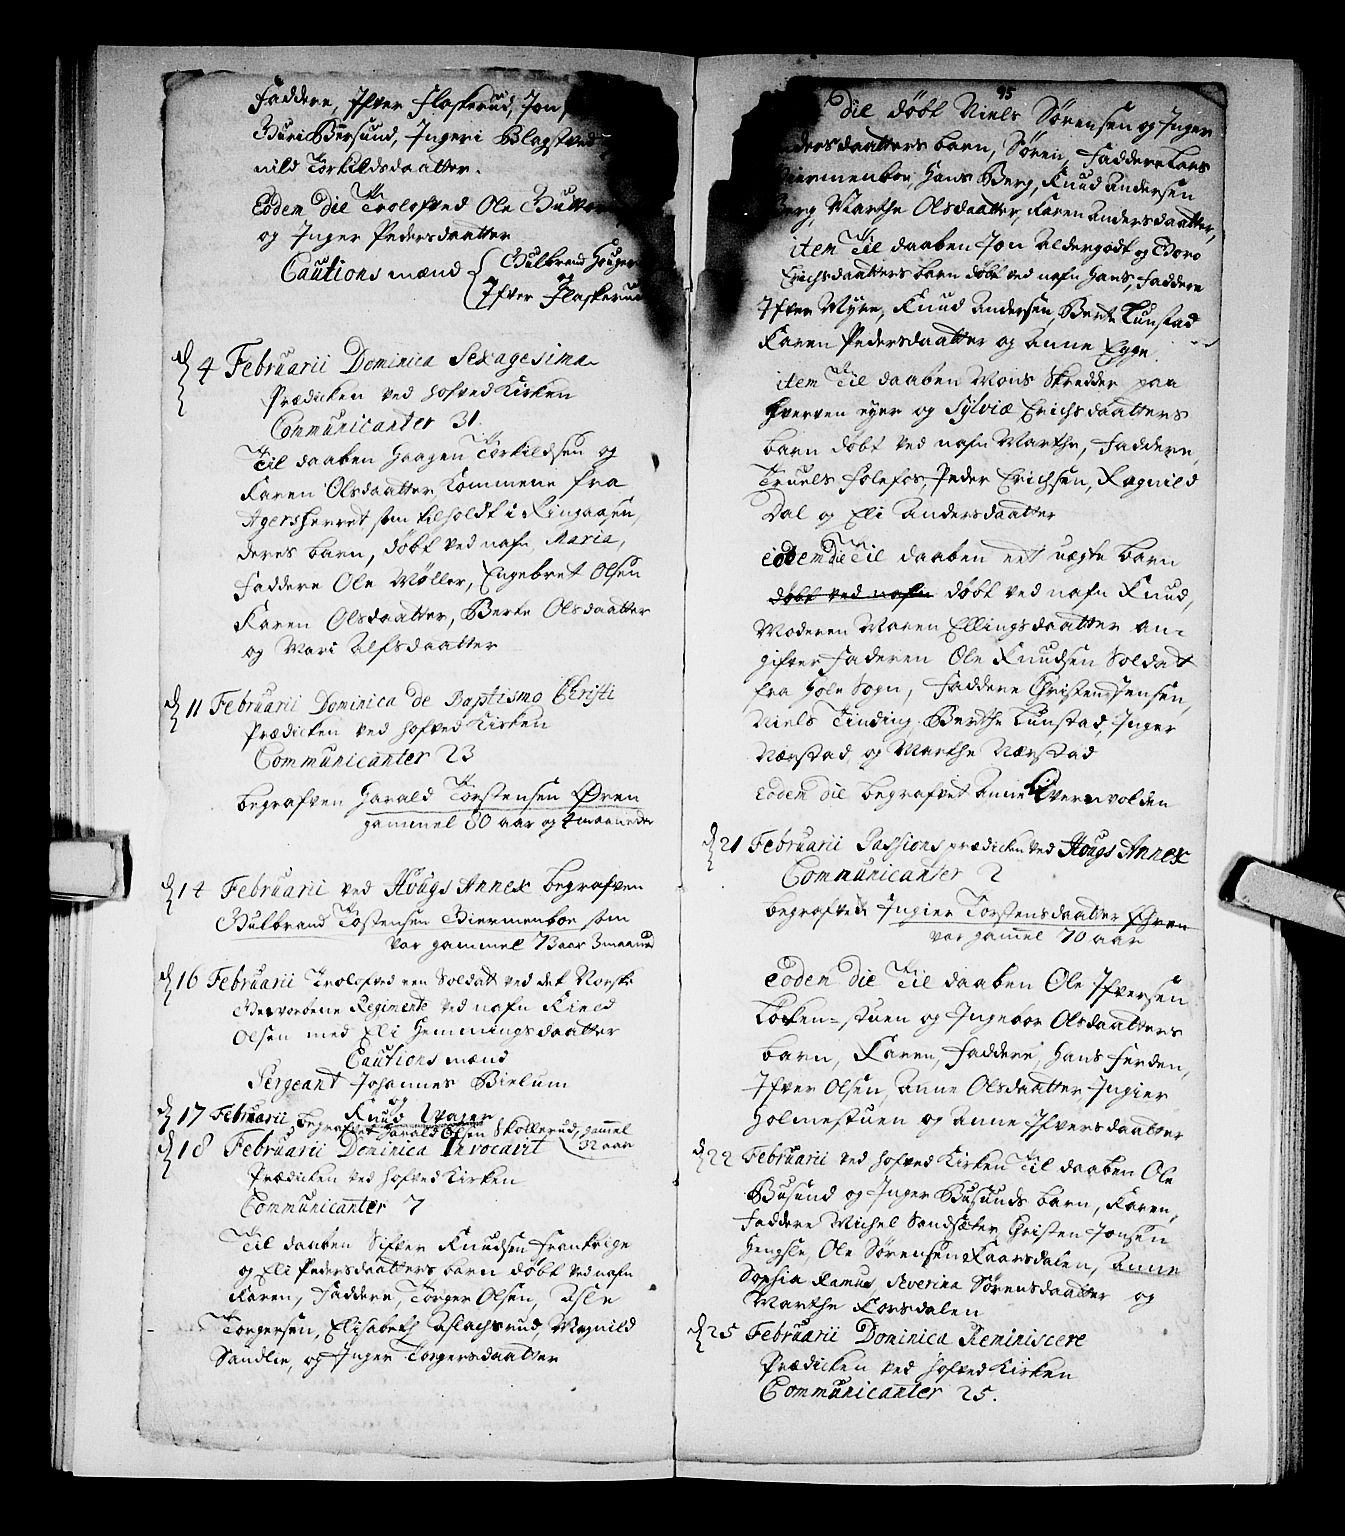 Faddere, Ifver Flaskerud, Jon
Guri Børsund, Ingeri Blagstved
nild Torkildsdaatter.
Eodem die Trolofved Ole
og Inger Pedersdaatter
Cautions mænd Gulbrand Houger
og
Ifver Flaskerud
d 4 Februarii Dominica Sexagesima
Prædicken ved Hofved Kirken
Communicanter 31.
Til daaben Haagen Torkildsen og
Karen Olsdaatter, kommene fra
Agers herret som tilholdt i Ringaasen,
deres barn, døbt ved nafn, Maria,
Faddere Ole Møller, Engebret Olsen
Karen Olsdaatter, Berte Olsdaatter
og Mari Alfsdaatter
d 11 Februarii Dominica de Baptismo Christi
Prædicken ved Hofved Kirken
Communicanter 23
begrafven Harald Torstensen Øren
gammel 80 aar og 4 maaneder
d 14 Februarii ved Hougs Annex begrafven
Gulbrand Tostensen Biermenboe som
var gammel 73 aar 3 maaned
d 16 Februarii Trolofved een Soldatt ved det Norske
Regimente ved nafn Kield
Olsen med Eli Hemmingsdaatter
Cautions mænd
Sergeant Johannes Bielum
og
Knud Wager
d 17 Februarii begrafvet Harald Olsen Skollerud, gammel
52 aar
d 18 Februarii Dominica Invocavit
Prædicken ved Hofved Kirken
Communicanter 7
Til daaben Sifver Knudsen Frankrige
og Eli Pedersdaatters barn døbt ved nafn
Karen, Faddere, Torger Olsen, Asle
Torgersen, Elisabeth Aslachsrud, Magnild
Sandlie, og Inger Torgersdaatter
95
die døbt Niels Sørensen og Inger
dersdaatters barn, Søren, Faddere Lars
iermenboe, Hans Berg, Knud Andersen
Berg, Marthe Olsdaatter, Karen Andersdaatter,
item Til daaben Jon Aldergodt og Goro
Erichsdaatters barn døbt ved nafn Hans, Faddere
Ifver Myre, Knud Andersen, Berte Tunstad
Karen Pedersdaatter og Anne Egge.
item Til daaben Mons Skredder paa
Hverven eyer og Sylviæ Erichsdaatters
barn døbt ved nafn Marthe, Faddere,
Truels Solefos, Peder Erichsen, Ragnild
Dal og Eli Andersdaatter
eodem die Til daaben eet uægte barn
døbt ved nafn døbt ved nafn Knud,
Moderen Maren Ellingsdaatter an-
gifver Faderen Ole Knudsen Soldat
fra Hole Sogn, Faddere Christen Jensen,
Niels Tinding Berthe Tunstad, Inger
Nærstad, og Marthe Nærstad
Eodem die begrafvet Anne Qvernvolden
d 21 Februarii Passions prædicken ved Hougs Annex
Communicanter 2
begrafved Ingier Torstensdaatter Øren
var gammel 70 aar
Eodem die Til daaben Ole Ifversen
Løken-stuen og Ingebor Olsdaatters
barn, Karen, Faddere, Hans Ferden,
Ifver Olsen, Anne Olsdaatter Ingier
Holmestuen og Anne Ifversdaatter
d 22 Februarii ved Hofved Kirken Til daaben Ole
Busund og Inger Busunds barn, Karen,
Faddere Michel Sandsæter, Christen Jonsen
Hengsle, Ole Sørensen Kaarsdalen, Anne
Sophia Ramus, Severina Sørensdaatter og
Marthe Korsdalen
d 25 Februarii Dominica Reminiscere
Prædicken ved Hofved Kirken
Communicanter 25.